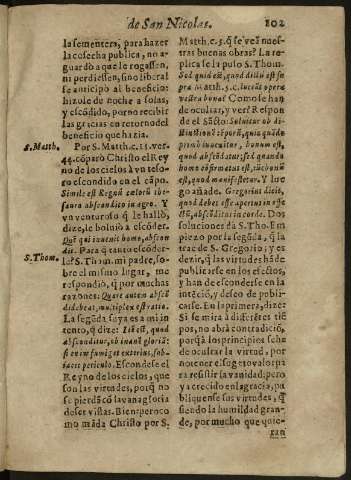 de San Nicolas. 102
la sementera, para hazer
la cosecha publica, no a-
guardò a que le rogassen,
ni perdiessen, sino liberal
se anticipò al beneficio:
hizole de noche a solas,
y escõdido, por no recibir
las gracias en retorno del
beneficio que hazia.
S. Matth. Por S. Matth. c. 13. ver.
44. cõparò Christo el Rey
no de los cielos à vn teso-
ro escondido en el cãpo.
Simile est Regnũ cœlorũ the-
sauro abscondito in agro. Y
vn venturoso q̃ le hallò,
dize, le boluiò a escõder.
Quẽ qui inuenit homo, abscon
dit. Para q̃ tanto escõder-
S. Thom. le? S. Thom. mi padre, so-
bre el mismo lugar, me
respondiò, q̃ por muchas
razones: Quare autem abscõ
did, multiplex est ratio.
La segũda suya es a mi in
tento, q̃ dize: Itẽ est, quod
absconditur, ob inanẽ gloriã:
si enim fumiget exterius, sub-
iacet periculo. Escondese el
Reyno de los cielos, que
son las virtudes, porq̃ no
se pierdã cõ la vanagloria
de ser vistas. Bien: pero co
mo mãda Christo por S.
Matth. c. 5. q̃ se veã nues-
tras buenas obras? La re-
plica se la puso S. Thom.
Sed quid est, quod dictũ est su
pra Matth. 5. c. luceãt opera
vestra bona? Como se han
de ocultar, y ver? Respon
de el Sãcto: Soluitur ob di-
stinctionẽ tẽporũ, quia quãdo
primo inuenitur, bonum est,
quod abscõdatur; sed quando
homo cõfirmatus est, tũc bonũ
est, quod manifestetur. Y lue
go añade. Gregorius dicit,
quod debet esse apertus in effe
ctu, abscõditus in corde. Dos
soluciones dà S. Tho. Em
pieço por la segũda, q̃ la
trae de S. Gregorio; y es
dezir, q̃ las virtudes hã de
publicarse en los efectos,
y han de esconderse en la
intẽciõ, y deseo de publi-
carse. En la primera, dize:
Si se mira a diferẽtes tiẽ
pos, no abrà contradiciõ,
porq̃ a los principios se ha
de ocultar la virtud, por
no tener el sugeto valor pa
ra resistir la vanidad; pero
ya crecido en la gracia, pu
bliquense sus virtudes, q̃
siendo la humildad gran-
de, por mucho que quie-
ran